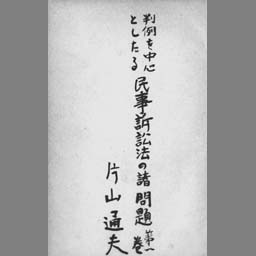 判例を中心
としたる
民事訴訟法の諸問題
第一
巻
片山通夫